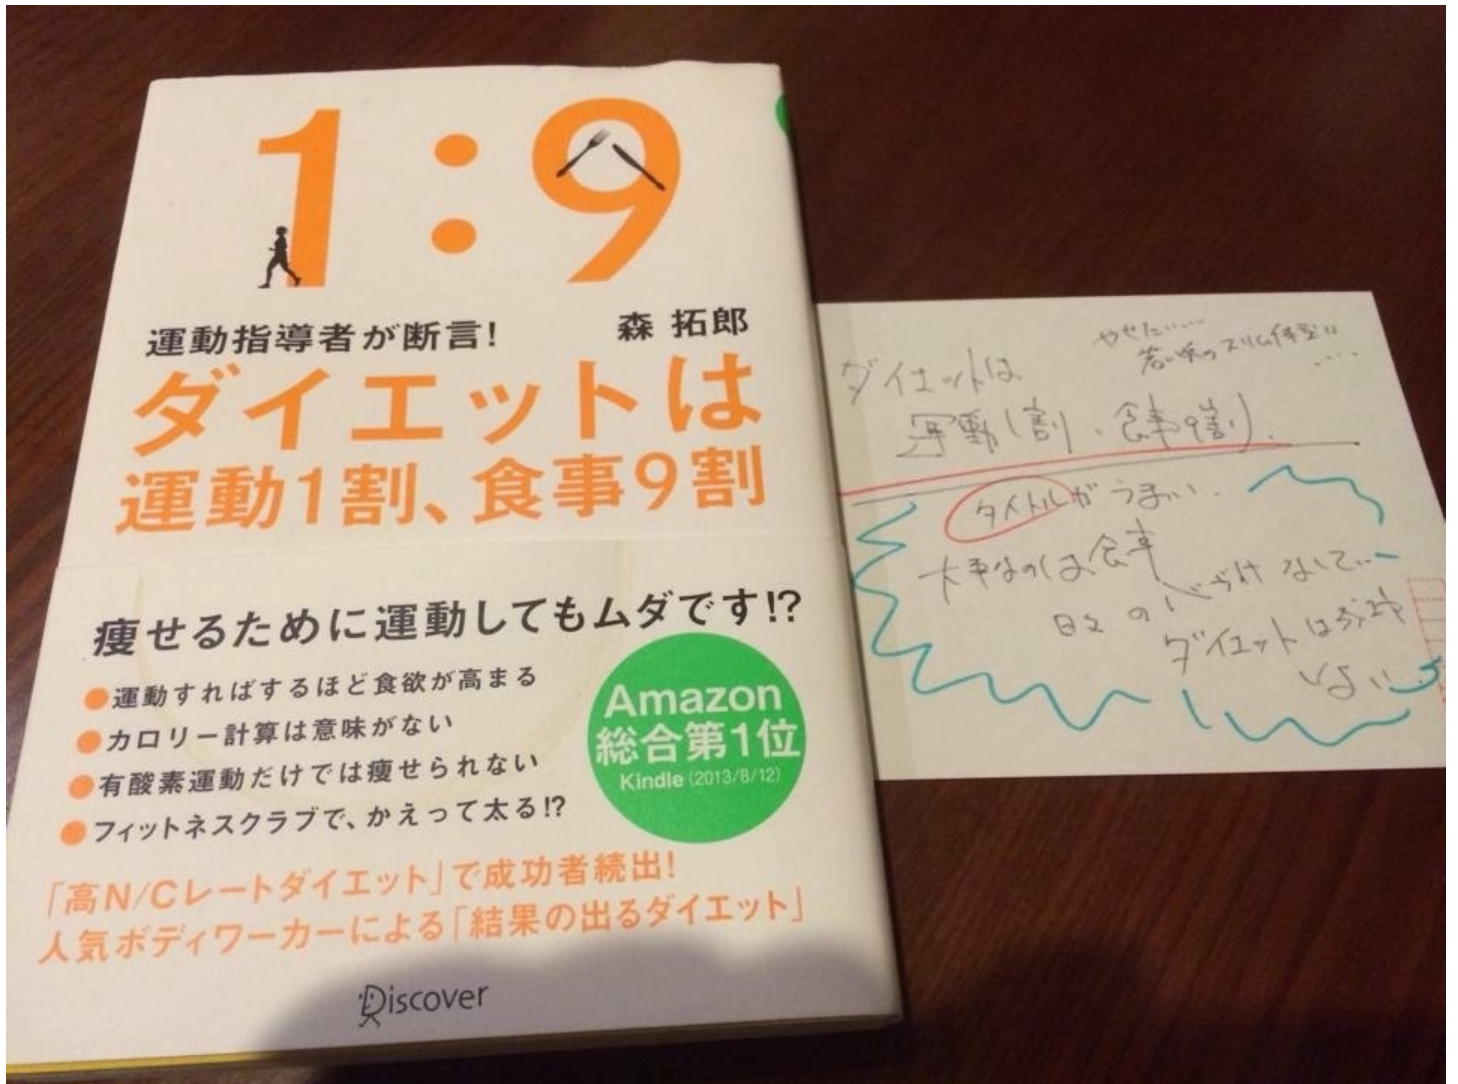 1:9
運動指導者が断言! 森 拓郎
ダイエットは
運動1割、食事9割
痩せるために運動してもムダです!?
●運動すればするほど食欲が高まる
●カロリー計算は意味がない
●有酸素運動だけでは痩せられない
●フィットネスクラブで、かえって太る!?
Amazon
総合第1位
Kindle (2013/8/12)
「高N/Cレートダイエット」で成功者続出!
人気ボディワーカーによる「結果の出るダイエット」
Discover
やせたい……
若い頃のスリム体型に
....
ダイエットは
運動1割、食事9割
タイトルがうまい.
大事なのは食事
日々の心がけなしで
ダイエットは